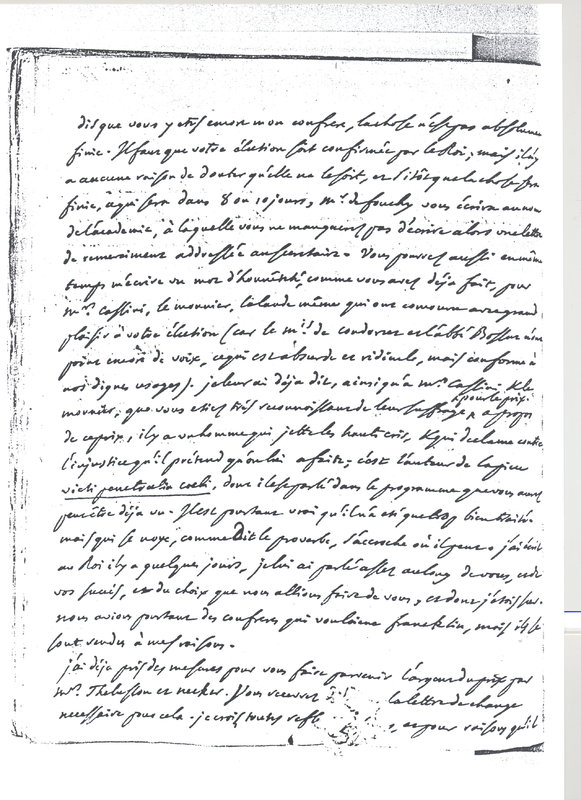 dis que vous y etes encore mon confrere, la chose n'est pas absolument
finie. Il faut que votre élection soit confirmée par le Roi; mais il n'y
a aucune raison de douter qu'elle ne le soit, et sitôt que la chose sera
finie, ce qui sera dans 8 ou 10 jours, mr. de fouchy vous écrira au nom
de l'academie, à laquelle vous ne manquerez pas d'écrire alors une lettre
de remerciment addressée au secretaire. Vous pourrez aussi en même
temps m'écrire un mot d'honnêteté, comme vous avez déja fait, pour
mrs. Cassini, le monnier, lalande même qui ont concouru avec grand
plaisir à votre élection (car le mis. de condorcet et l'abbé Bossut n'ont
point encore de voix, ce qui est absurde et ridicule, mais conforme à
nos dignes usages). je leur ai déja dit, ainsi qu'à mrs. Cassini & le
monnier, que vous etiez très reconnoissant de leur suffrage pour le prix. a propos
de ce prix, il y a un homme qui jette les hauts cris, & qui declame contre
l'injustice qu'il prétend qu'on lui a faite; c'est l'auteur de la piece
victi penetralia coeli, dont il est parlé dans le programme que vous aurez
peut être déja vu. Il est pourtant vrai qu'il n'a été que trop bien traité
mais qui se noye, comme Dit le proverbe, s'accroche où il peut. j'ai écrit
au Roi il y a quelques jours, je lui ai parlé assez au long de vous, et de
vos succès, et du choix que nous allions faire de vous, et dont j'étois sur.
nous avions pourtant des confreres qui vouloient francklin, mais ils se
sont rendus à mes raisons.
j'ai déja pris des mesures pour vous faire parvenir l'argent du prix par
mrs. Thelusson et necker. Vous recevrez la lettre de change
necessaire pour cela. je crois, toutes et pour raisons qu'il